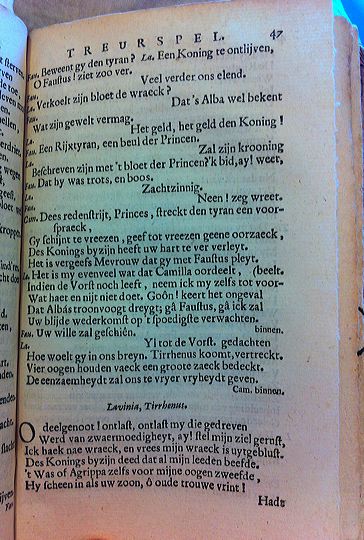 TREURSPEL. 47
Fau. Beweent gy den tyran? La. Een Koning te ontlijven,
O Faustus! ziet zoo ver.
Fau. Veel verder ons elend.
La. Verkoelt zijn bloet de wraeck?
Fau. Dat's Alba wel bekent
Wat zijn gewelt vermag.
La. Het geld, het geld den Koning!
Fau. Een Rijxtyran, een beul der Princen.
La. Zal zijn krooning
Beschreven zijn met 't bloet der Princen? 'k bid, ay! weer,
Fau. Dat hy was trots, en boos.
La. Zachtzinnig.
Fau. Neen! zeg wreet.
Cam. Dees redenstrijt, Princes, streckt den tyran een voor-
spraeck,
Gy schijnt te vreezen, geef tot vreezen geene oorzaeck,
Des Konings byzijn heeft uw hart te ver verleyt.
Het is vergeefs Mevrouw dat gy met Faustus pleyt.
La. Het is my evenveel wat dat Camilla oordeelt, (beelt.
Indien de Vorst noch leeft, neem ick my zelfs tot voor-
Wat haet en nijt niet doet. Goôn! keert het ongeval
Dat Albás troonvoogt dreygt; gâ Faustus, gâ ick zal
Uw blijde wederkomst op 't spoedigste verwachten.
Fau. Uw wille zal geschiên. binnen.
La. Yl tot de Vorst. gedachten
Hoe woelt gy in ons breyn. Tirrhenus koomt, vertreckt.
Vier oogen houden vaeck een groote zaeck bedeckt.
De eenzaemheydt zal ons te vryer vryheydt geven.
Cam. binnen.
Lavinia, Tirrhenus.
O deelgenoot! ontlast, ontlast my die gedreven
Werd van zwaermoedigheyt, ay! stel mijn ziel gerust,
Ick haek nae wraeck, en vrees mijn wraeck is uytgeblust.
Des Konings byzijn deed dat al mijn leeden beefde.
't Was of Agrippa zelfs voor mijne oogen zweefde,
Hy scheen in als uw zoon, ô oude trouwe vrint!
Hadt